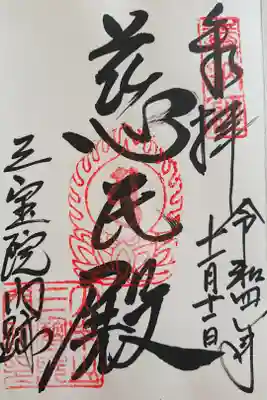 奉拝
令和四年
十一月十一日
慈氏殿
三宝院門跡